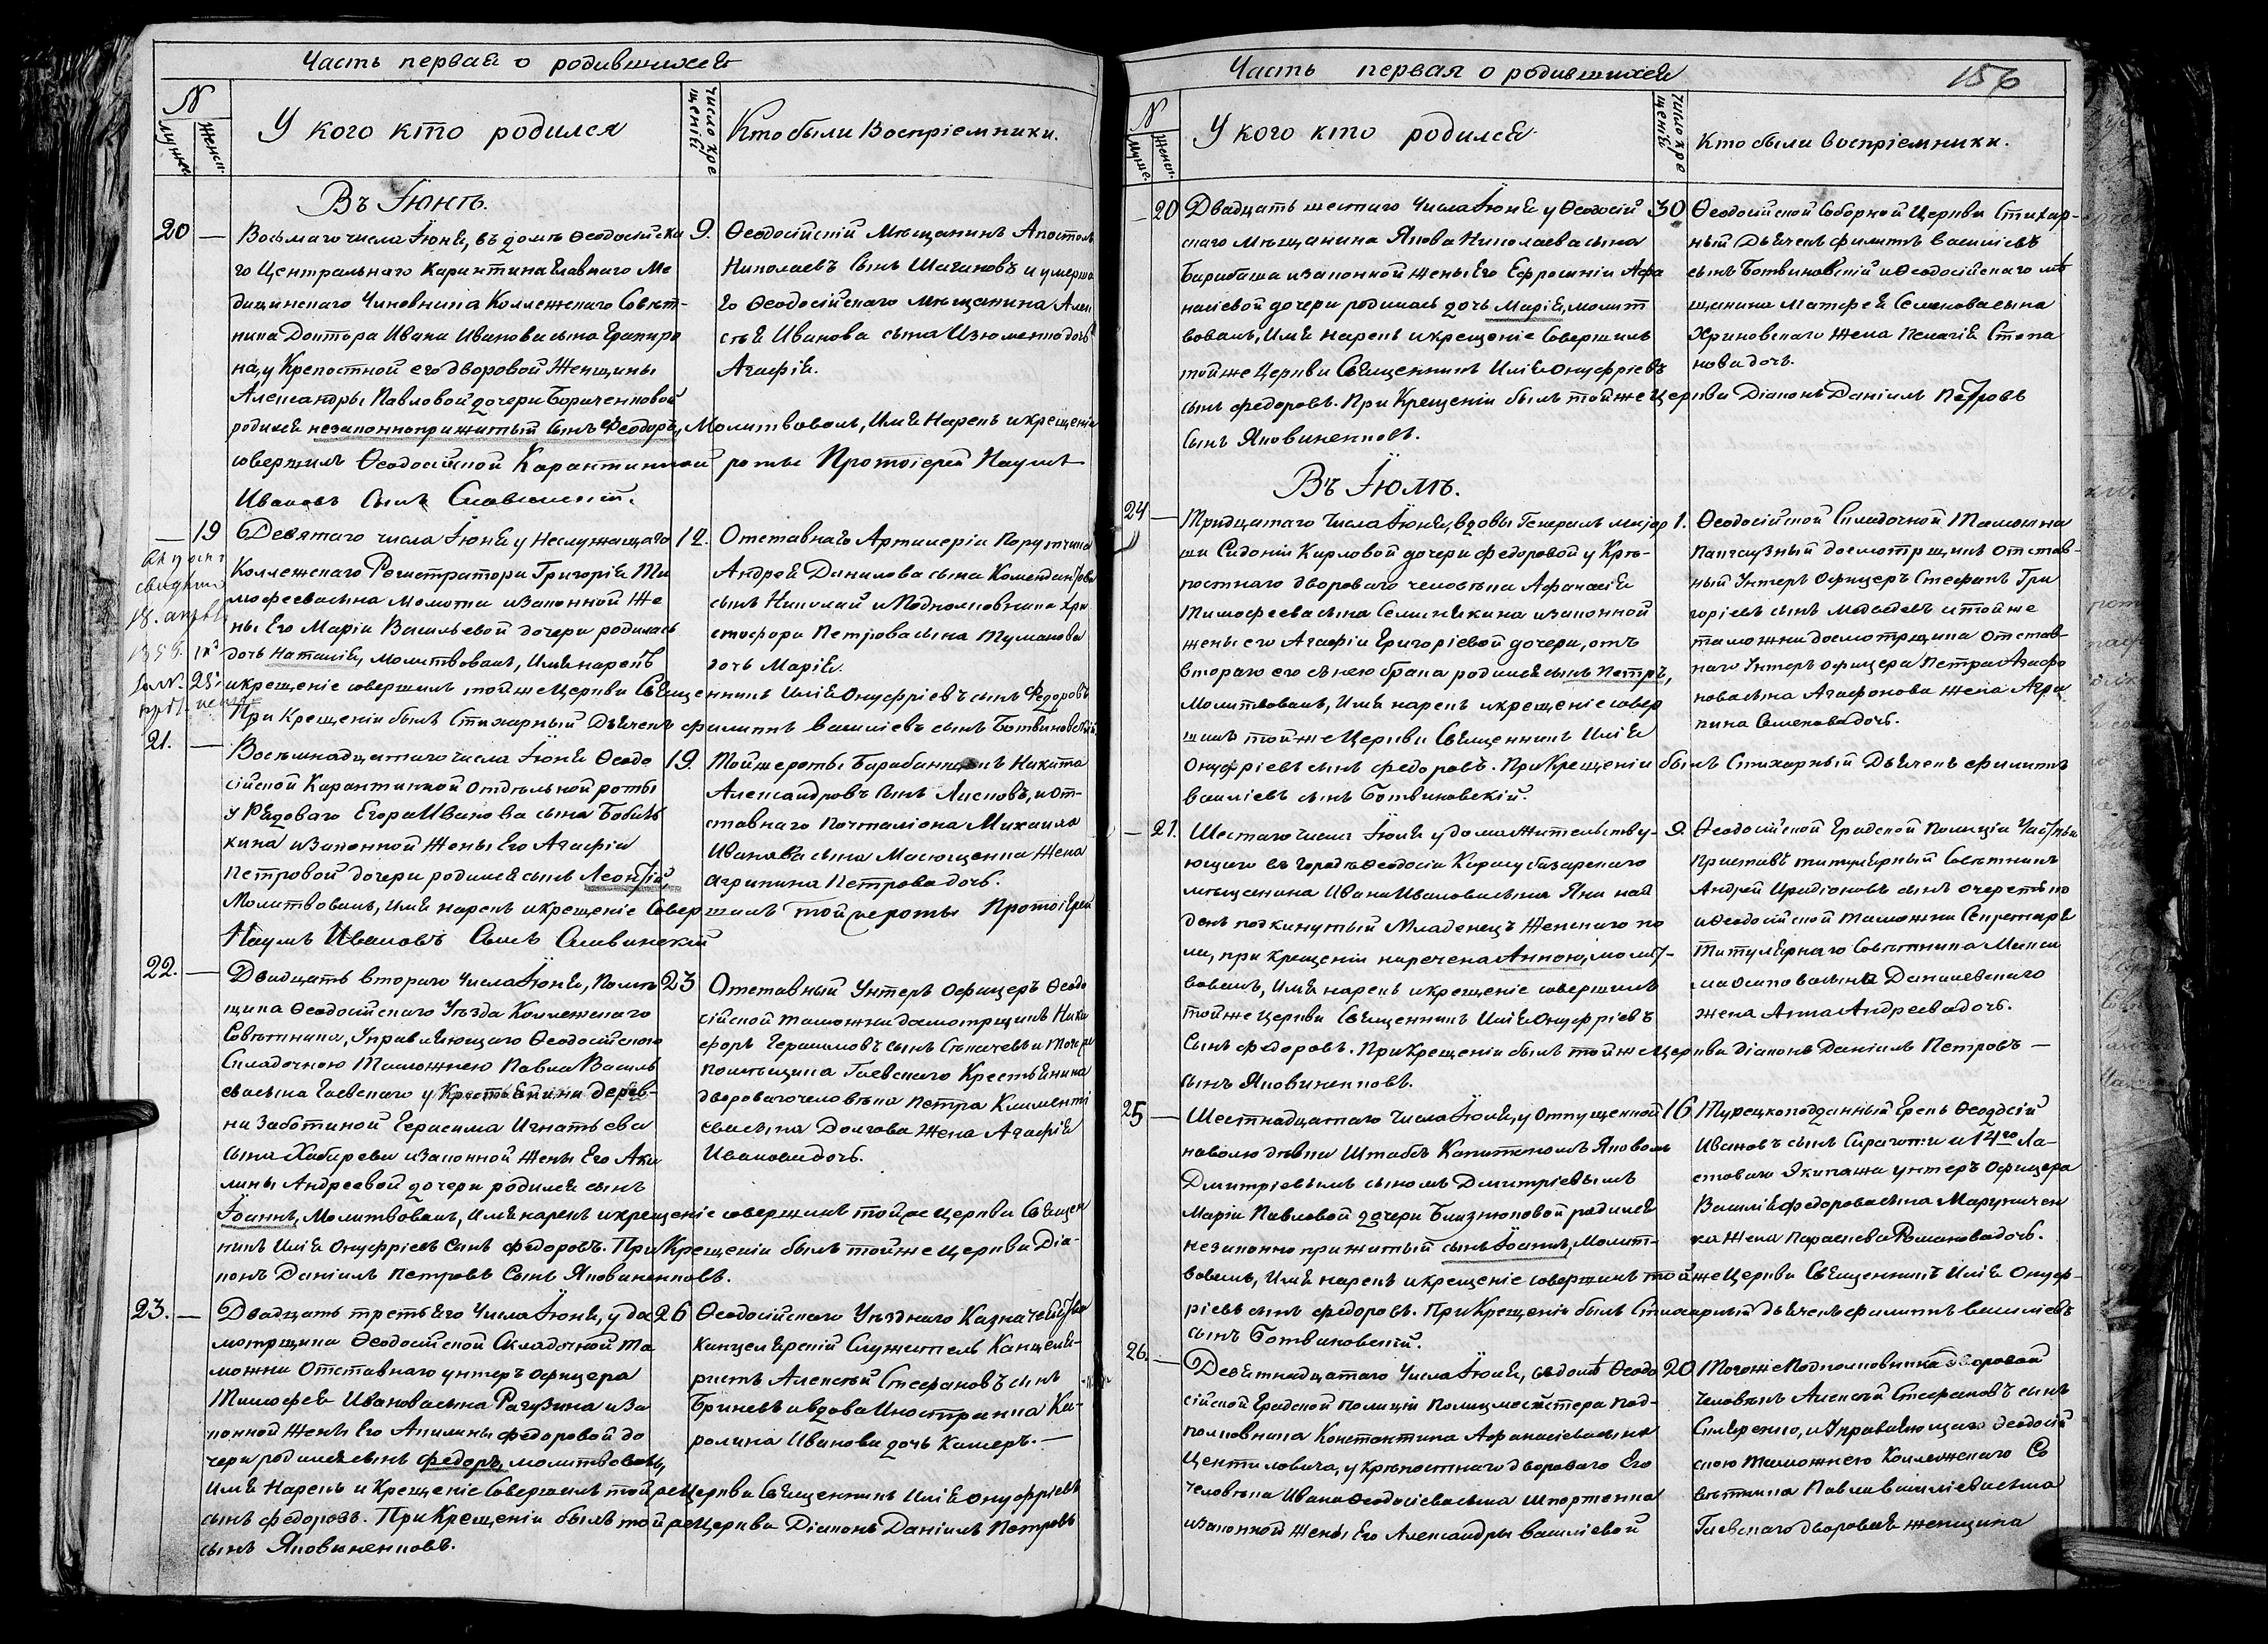 Часть первая о родившихся
N
мужеск.
женск.
У кого кто родился
число кре
щенія
Кто были Воспріемники.
Въ Іюнѣ.
20 — Восьмаго числа Іюня, въ домѣ Ѳеодосійска
го Центральнаго Карантина Главнаго Ме
дицинскаго Чиновника Коллежскаго Совѣт-
ника Доктора Ивана Иванова сына
на, у Крепостной его дворовой Женщины
Александры Павловой дочери Бориченковой
родился незаконноприжитый сынъ Ѳеодоръ, Молитвовалъ, Имя Нарекъ и крещеніе
совершилъ Ѳеодосійской Карантинной роты Протоіерей Наумъ
Ивановъ Сынъ Славинскій.
9. Ѳеодосійскій Мѣщанинъ Апостолъ
Николаевъ Сынъ Шагановъ и умерша
го Ѳеодосійскаго Мѣщанина Алек
сѣя Иванова сына дочь
Агафія.
— 19 Девятаго числа Іюня у Неслужащаго
Коллежскаго Регистратора Григорія Ти
мофеева сына Молотки и Законной Же
ны Его Маріи Васильевой дочери родилась
дочь Наталія, Молитвовалъ, Имя нарекъ
и крещеніе совершилъ той же Церкви Священникъ Илія Онуфріевъ сынъ Федоровъ
При Крещеніи былъ Стихарный Дьячекъ филиппъ василіевъ сынъ Ботвиновскій.
12. Отставнаго Артилеріи Порутчика
Андрея Данилова сына
сынъ Николай и Подполковника Хри
стофора Петрова сына Туманова
дочь Марія.
21. — Восемнадцатаго числа Іюня Ѳеодо
сійской Карантинной Отдѣльной роты
у Рядоваго Егора Иванова сына
кина и Законной Жены Его Агафіи
Петровой дочери родился сынъ Леонтій,
Молитвовалъ, имя нарекъ и крещеніе Совершилъ той же роты Протоіерей
Наумъ Ивановъ Сынъ Славинскій
19. Той же роты Барабанщикъ Никита
Александровъ Сынъ Лисковъ, и от-
ставнаго Почталіона Михаила
Иванова сына Масющенка Жена
Агрипина Петрова дочь.
22. — Двадцать втораго Числа Іюня, Помѣ
щика Ѳеодосійскаго Уѣзда Коллежскаго
Совѣтника, Управляющаго Ѳеодосійскою
Складочною Таможнею Павла Василь
ева сына Гаевскаго у Крестьянина дерев-
ни Заботиной Герасима Игнатьева
сына Хабарева и Законной Жены Его Аку
лины Андреевой дочери родился сынъ
Іоаннъ, Молитвовалъ, Имя нарекъ и крещеніе совершилъ той же Церкви Священ
никъ Илія Онуфріевъ Сынъ Федоровъ. При Крещеніи былъ той же Церкви Діа-
конъ Даніилъ Петровъ Сынъ Яковиненковъ.
23 Отставный Унтеръ Офицеръ Ѳеодо
сійской таможни досмотрщикъ Ники
форъ Герасимовъ сынъ и того же
помѣщика Гаевскаго Крестьянина
двороваго человѣка Петра Клименті
ева сына Долгова Жена Агафія
Иванова дочь.
23. — Двадцать третьяго Числа Іюня, у до
мотрщика Ѳеодосійской Складочной Та
можни Отставнаго унтеръ офицера
Тимофея Иванова сына Рагузина и За
конной Жены Его Акилины Федоровой до
чери родился сынъ Федоръ, молитвовалъ,
Имя Нарекъ и Крещеніе Совершилъ той же Церкви Священникъ Илія Онуфріевъ
сынъ Федоровъ. При Крещеніи былъ той же Церкви Діаконъ Даніилъ Петровъ
сынъ Яковиненковъ.
26 Ѳеодосійскаго Уѣзднаго Казначейства
Канцелярскій Служитель Канцеля-
ристъ Алексѣй Стефановъ сынъ
Бриневъ и вдова Иностранка Ка-
ролина Иванова дочь Камеръ. —
Часть первая о родившихся
156
N
муже.
женск.
У кого кто родился
число кре
щенія
Кто были воспріемники.
— 20 Двадцать шестаго Числа Іюня у Ѳеодосій
скаго Мѣщанина Якова Николаева сына
Барабаша и Законной жены Его Ефросиніи Афа
насіевой дочери родилась дочь Марія, молит
вовалъ, Имя нарекъ и крещеніе Совершилъ
той же Церкви Священникъ Илія Онуфріевъ
сынъ Федоровъ. При Крещеніи былъ той же Церкви Діаконъ Даніилъ Петровъ
Сынъ Яковиненковъ.
30 Ѳеодосійской Соборной Церкви Стихар-
ный Дьячекъ филиппъ василіевъ
сынъ Ботвиновскій и Ѳеодосійскаго мѣ
щанина Матфея Семенова сына
Хриновскаго Жена Пелагія Степа
нова дочь.
Въ Іюлѣ.
24 — Тридцатаго Числа Іюня, вдовы Генералъ маіор
ши Сидоніи Карловой дочери Федоровой у Крѣ-
постнаго двороваго человѣка Афанасія
Тимофеева сына и законной
жены его Агафіи Григоріевой дочери, отъ
втораго его с нею брака родился сынъ Петръ,
Молитвовалъ, Имя нарекъ и крещеніе совер
шилъ той же Церкви Священникъ Илія
Онуфріевъ сынъ Федоровъ. При Крещеніи былъ Стихарный Дьячекъ филиппъ
василіевъ сынъ Ботвиновскій.
1. Ѳеодосійской Складочной Таможни
Пакгаузный досмотрщикъ отстав-
ный Унтеръ Офицеръ Стефанъ Гри
горіевъ сынъ и той же
таможни досмотрщика отстав-
наго Унтеръ офицера Петра Агафо
нова сына Агафонова жена Агри
пина Семенова дочь.
— 21. Шестаго числа Іюля у дома Жительству-
ющаго въ городѣ Ѳеодосіи Карасубазарскаго
мѣщанина Ивана Иванова сына Яни най
денъ подкинутый Младенецъ Женскаго по
ла, при крещеніи наречена Анною, молит-
вовалъ, Имя нарекъ и крещеніе совершилъ
той же Церкви Священникъ Илія Онуфріевъ
Сынъ Федоровъ. При Крещеніи былъ той же Церкви діаконъ Даніилъ Петровъ —
сынъ Яковиненковъ.
9. Ѳеодосійской Градской Полиціи Частный
Приставъ титулярный Совѣтникъ
Андрей Иродіоновъ сынъ
и Ѳеодосійской Таможни Секретаря
Титулярнаго Совѣтника Макси
ма Осипова сына Данилевскаго
жена Анна Андреева дочь.
25 — Шестнадцатаго Числа Іюля, у Отпущенной
на волю дѣвки Штабсъ Капитаномъ Яковомъ
Дмитріевымъ сыномъ Дмитріевымъ
Маріи Павловой дочери Близнюковой родился
незаконно прижитый сынъ Іоаннъ, Молит-
вовалъ, Имя нарекъ и крещеніе совершилъ той же Церкви Священникъ Илія Онуф-
ріевъ сынъ Федоровъ. При Крещеніи былъ Стихарный дьячекъ филиппъ василіевъ
сынъ Ботвиновскій.
16 Турецкоподданный Грекъ Ѳеодосій
Ивановъ сынъ и 14го Ла-
стоваго Экипажа унтеръ Офицера
Василія Федорова сына Марунчен
ка Жена Параскева Романова дочь.
26. — Девятнадцатаго Числа Іюля, въ домѣ Ѳеодо
сійской Градской полиціи Полицмейстера Под-
полковника Константина Афанасіева сына
Центиловича, у Крѣпостнаго двороваго Его
Человѣка Ивана Ѳеодосіева сына Шпортенка
и законной жены Его Александры Василіевой
20 Того же Подполковника дворовой
Человѣкъ Алексѣй Стефановъ сынъ
и Управляющаго Ѳеодосій
скою Таможнею Коллежскаго Со
вѣтника Павла василіева сына
Гаевскаго дворовая женщина